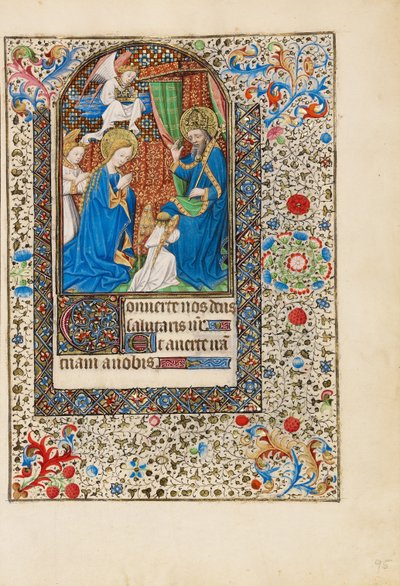 Conuerte nos deus
salutaris nr̄
Et auerte irā
tuam a nobis
95